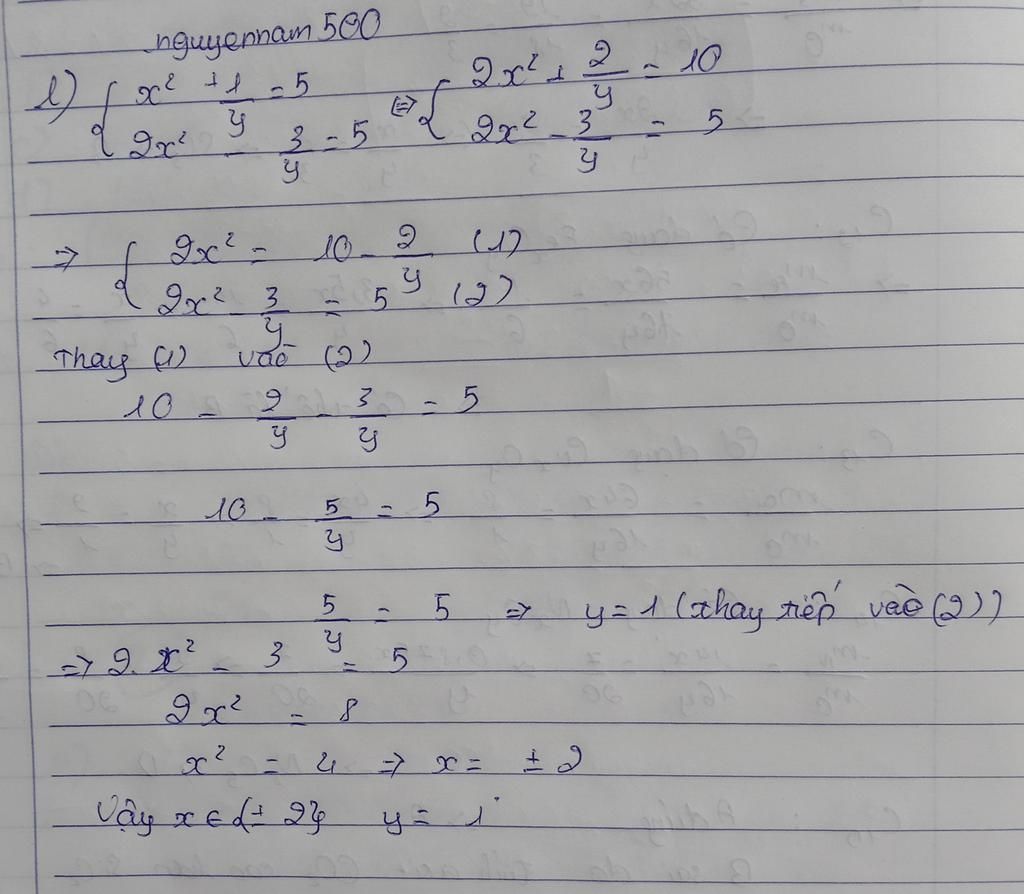 nguyennam 500
1) { x² + 1/y = 5 ⇔ { 2x² + 2/y = 10
2x² - 3/y = 5 2x² - 3/y = 5
⇒ { 2x² = 10 - 2/y (1)
2x² - 3/y = 5 (2)
Thay (1) vào (2)
10 - 2/y - 3/y = 5
10 - 5/y = 5
5/y = 5 ⇒ y = 1 (thay tiếp vào (2))
⇒ 2.x² - 3 = 5
2x² = 8
x² = 4 ⇒ x = ±2
Vậy x ∈ {±2} y = 1